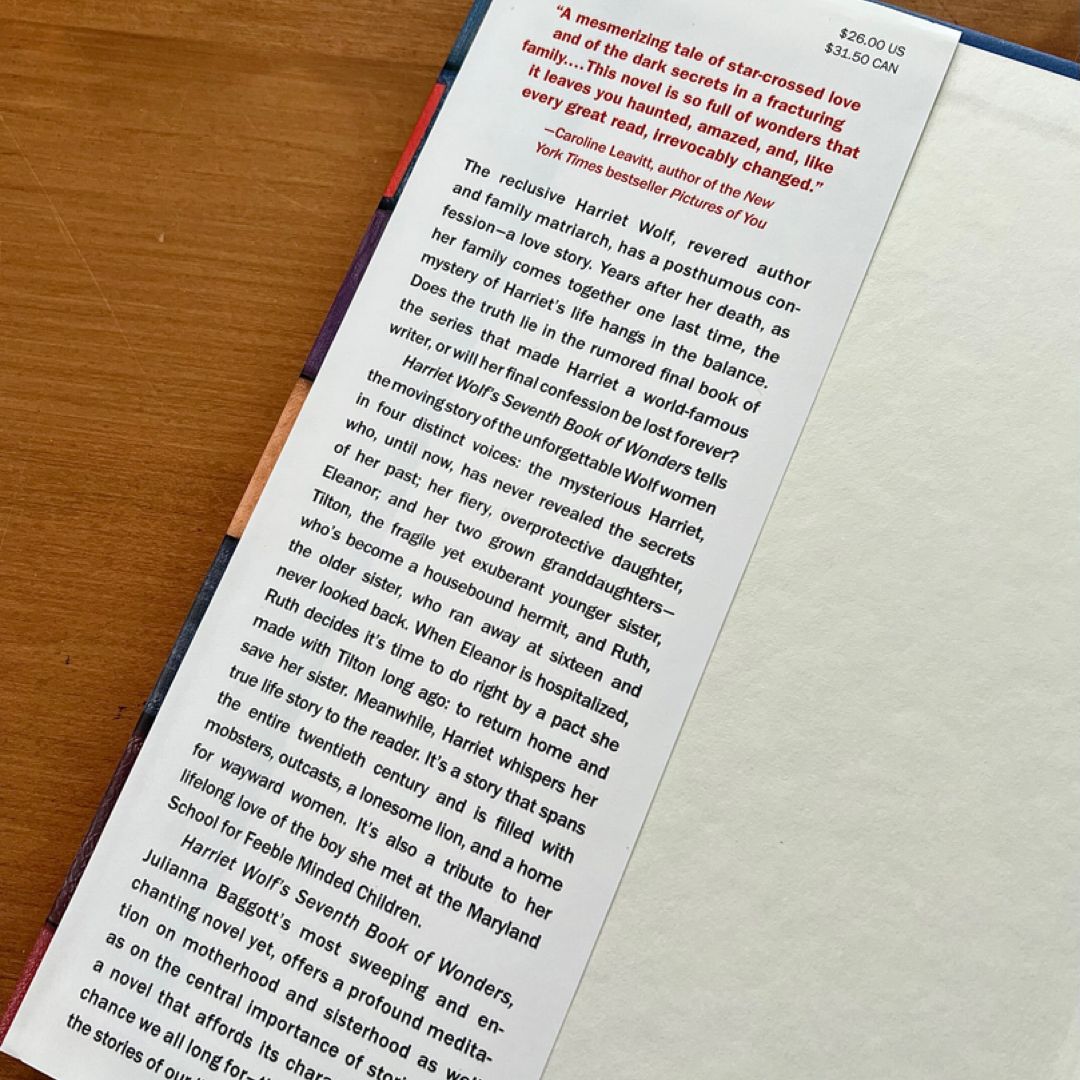 $26.00 US
$31.50 CAN
“A mesmerizing tale of star-crossed love
and of the dark secrets in a fracturing
family....This novel is so full of wonders that
it leaves you haunted, amazed, and, like
every great read, irrevocably changed.”
—Caroline Leavitt, author of the New
York Times bestseller Pictures of You
The reclusive Harriet Wolf, revered author
and family matriarch, has a posthumous con-
fession—a love story. Years after her death, as
her family comes together one last time, the
mystery of Harriet’s life hangs in the balance.
Does the truth lie in the rumored final book of
the series that made Harriet a world-famous
writer, or will her final confession be lost forever?
Harriet Wolf’s Seventh Book of Wonders tells
the moving story of the unforgettable Wolf women
in four distinct voices: the mysterious Harriet,
who, until now, has never revealed the secrets
of her past; her fiery, overprotective daughter,
Eleanor; and her two grown granddaughters—
Tilton, the fragile yet exuberant younger sister,
who’s become a housebound hermit, and Ruth,
the older sister, who ran away at sixteen and
never looked back. When Eleanor is hospitalized,
Ruth decides it’s time to do right by a pact she
made with Tilton long ago: to return home and
save her sister. Meanwhile, Harriet whispers her
true life story to the reader. It’s a story that spans
the entire twentieth century and is filled with
mobsters, outcasts, a lonesome lion, and a home
for wayward women. It’s also a tribute to her
lifelong love of the boy she met at the Maryland
School for Feeble Minded Children.
Harriet Wolf’s Seventh Book of Wonders,
Julianna Baggott’s most sweeping and en-
chanting novel yet, offers a profound medita-
tion on motherhood and sisterhood as well
as on the central importance of
a novel that affords its
chance we all long for—
the stories of our